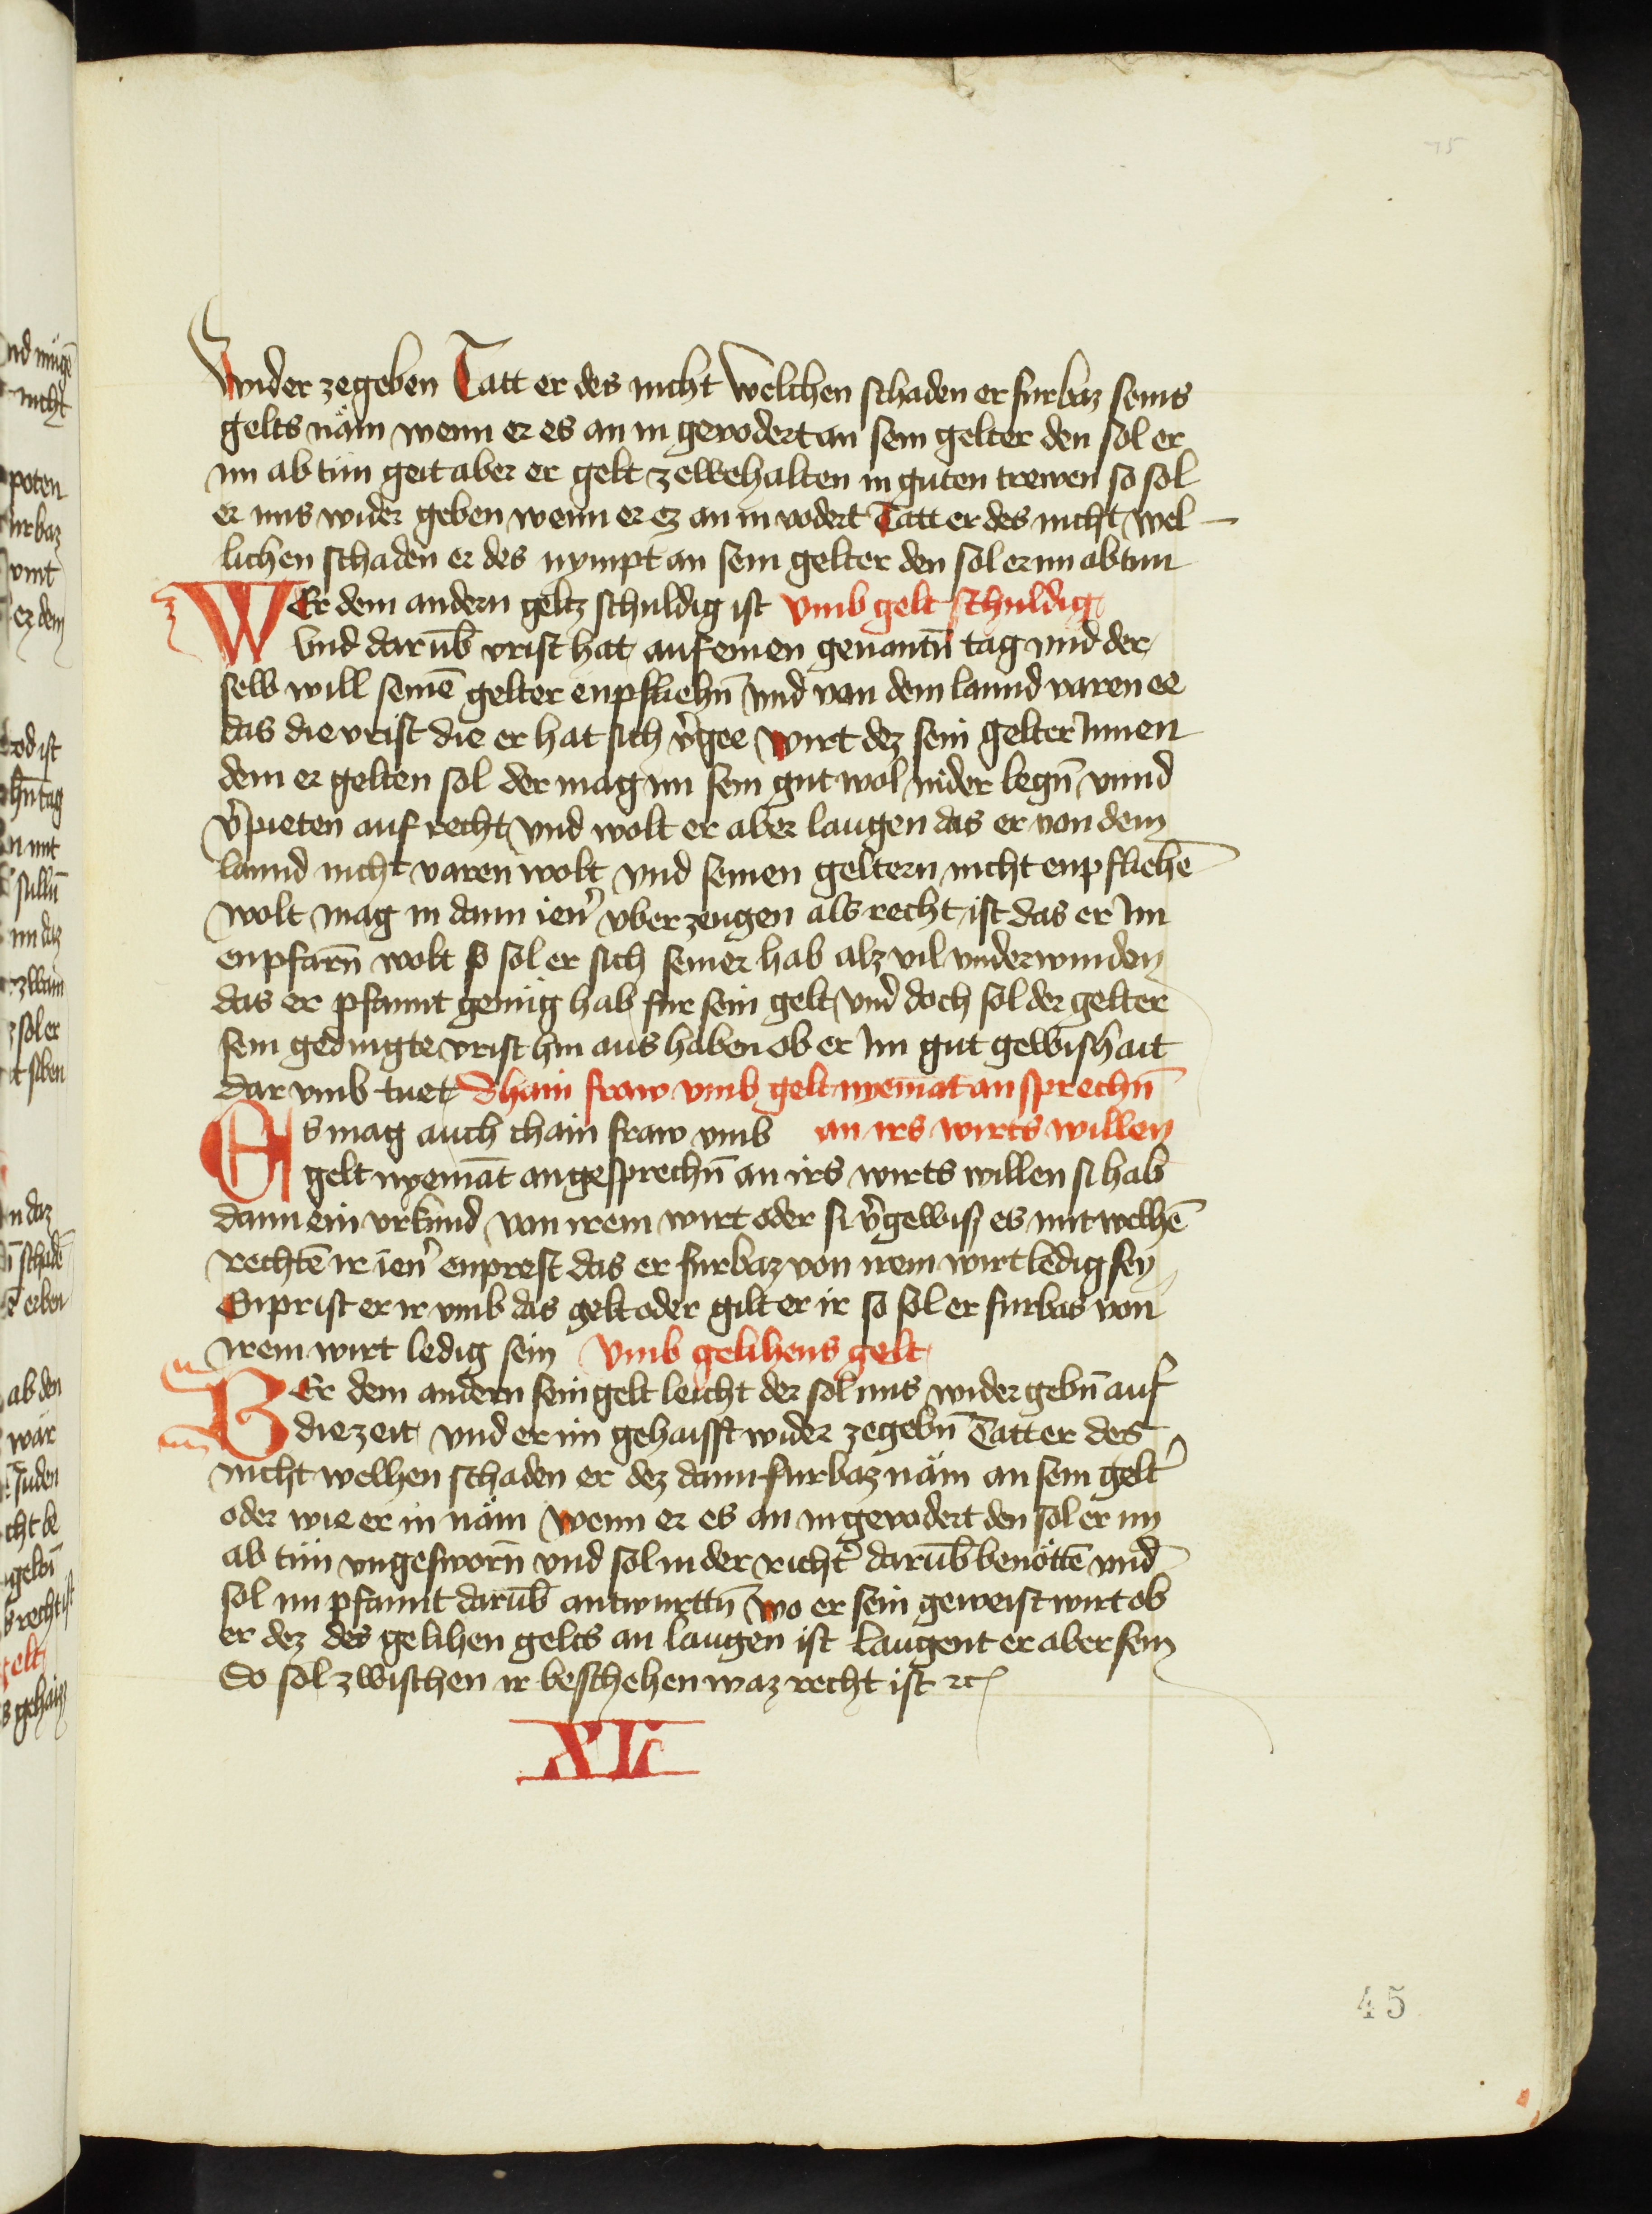 75
wider zegeben Tatt er des nicht welchen schaden er furbaz seins
gelts näm wenn er es an in gevodert an sein gelter den sol er
im ab tün geit aber er gelt zewehalten in guten trewen so sol
er ims wider geben wenn er ez an in vodert Tatt er des nicht wel¬
lichen schaden er des nympt an sein gelter den sol er im abtun
WEr dem andern geltz schuldig ist vmb gelt schuldig
vnd darūb vrist hat auf einen genantn̄ tag vnd der
selb will seinē gelter enpfliehn̄ vnd von dem lannd varen ee
das die vrist die er hat sich v̉gee wirt dez sein gelter Innen
dem er gelten sol der mag im sein gut wol nider legn̄ vnnd
v̉pieten auf recht vnd wolt er aber laugen das er von dem
lannd nicht varen wolt vnd seinen geltern nicht enpfliehē
wolt mag in dann ien̉ vberzeugen als recht ist das er Im
enpfarn̄ wolt so sol er sich seiner hab alz vil vnderwinden
das er pfannt genüg hab fur sein gelt vnd doch sol der gelter
sein gedingte vrist hin aus haben ob er Im gut gewishait
dar vmb tuet Dhain fraw vmb gelt nyemāt an sprechn̄
ES mag auch chain fraw vmb an irs wirts willen
gelt nyemāt angesprechn̄ an irs wirts willen si hab
dann ein vrkund von irem wirt oder si v̉gewiss es mit welhē
rechtē ir ien̉ enprest das er furbaz von irem wirt ledig sey
Enprist er ir vmb das gelt oder gilt er ir so sol er furbas von
irem wirt ledig sein vmb gelihens gelt
BEr dem andern sein gelt leicht der sol ims wider gebn̄ auf
die zeit vnd er im gehaisst wider zegebn̄ Tatt er des
nicht welhen schaden er dez dann furbaz näm an sein gelt̉
oder wie er in näm wenn er es an in gevodert den sol er im
ab tün vngesworn̄ vnd sol in der richt̉ darūb benöttē vnd
sol im pfannt darūb antwurttn̄ wo er sein geweist wirt ob
er dez des gelihen gelts an laugen ist laugent er aber sein
Do sol zwischen ir beschehen waz recht ist ꝛc
XLi
45